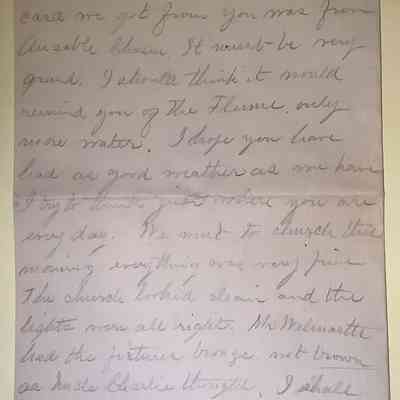 card we got from you was from
Ausable Chasm. It must be very
grand. I should think it would
remind you of the Flume, only
more water. I hope you have
had as good weather as we have
I try to think just where you are
every day. We went to church this
morning, everything was very fine
The church looked clean and the
lights were all right. Mr
had the fixtures bronze not brown
as Uncle Charlie thought. I shall